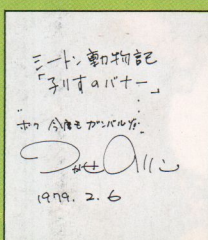 シートン動物記
「子りすのバナー」
"ボク 今度も ガンバルヅ!"
1979. 2. 6